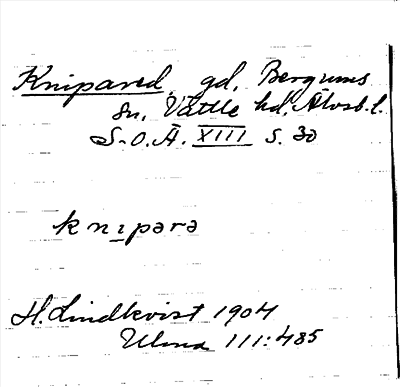 Knipared, gd, Bergums
sn, Vättle hd, Älvsb. l.
S.O.Ä. XIII s. 30
knıpərə
H. Lindkvist 1904
Ulma 111:485